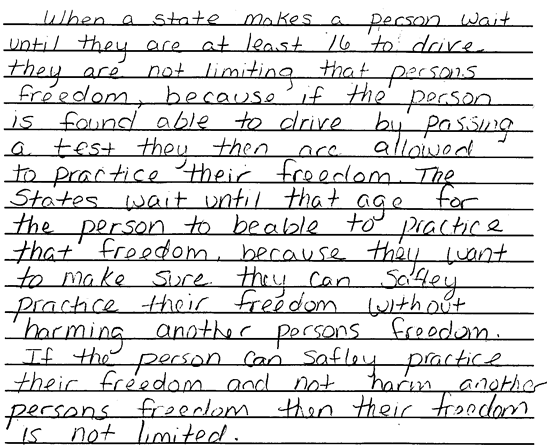 When a state makes a person wait
until they are at least 16 to drive
they are not limiting that persons
freedom, because if the person
is found able to drive by passing
a test they then are allowed
to practice their freedom. The
States wait until that age for
the person to beable to practice
that freedom, because they want
to make sure they can safley
practice their freedom without
harming another persons freedom.
If the person can safley practice
their freedom and not harm another
persons freedom then their freedom
is not limited.